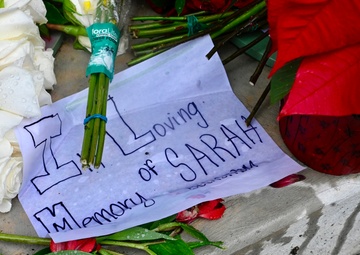 In Loving
Memory of SARAH